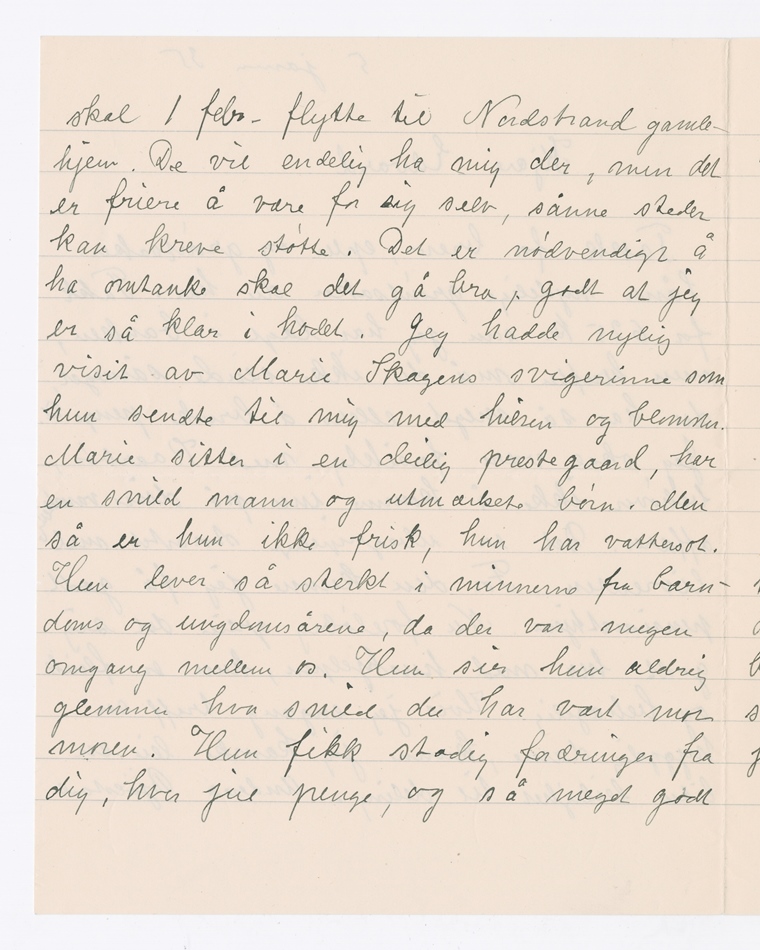 skal 1 febr- flytte til Nordstrand gamle-
hjem. De vil endelig ha mig der, men det
er friere å være for sig selv, sånne steder
kan kreve støtte. Det er nødvendigt å
ha omtanke skal det gå bra, godt at jeg
er så klar i hodet. Jeg hadde nylig
visit av Marie Skagens svigerinne som
hun sendte til mig med hilsen og blomster.
Marie sitter i en deilig prestegaard, har
en snild mann og utmærkete børn. Men
så er hun ikke frisk, hun har vattersot.
Hun lever så sterkt i minnerne fra barn-
doms og ungdomsårene, da der var megen
omgang mellem os. Hun sier hun aldrig
glemmer hvor snild du har vært mot
moren. Hun fikk stadig foræringer fra
dig, hver jul penge, og så meget godt